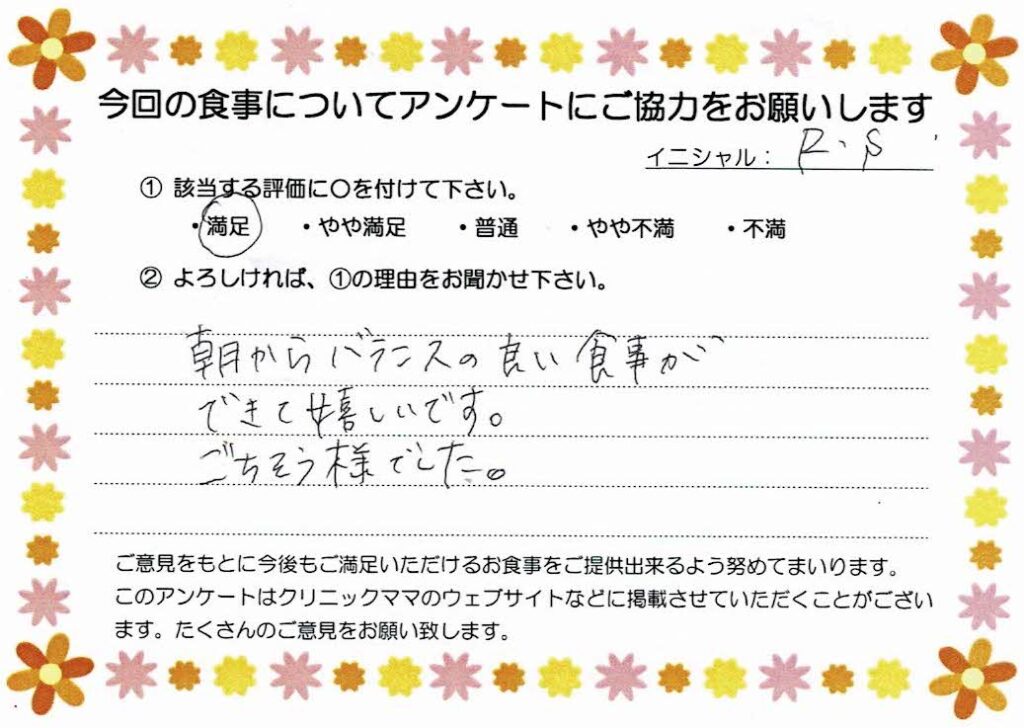 今回の食事についてアンケートにご協力をお願いします
イニシャル： R.S
① 該当する評価に〇を付けて下さい。
・満足 ・やや満足 ・普通 ・やや不満 ・不満
② よろしければ、①の理由をお聞かせ下さい。
朝からバランスの良い食事が
できて嬉しいです。
ごちそう様でした。
ご意見をもとに今後もご満足いただけるお食事をご提供出来るよう努めてまいります。
このアンケートはクリニックママのウェブサイトなどに掲載させていただくことがござい
ます。たくさんのご意見をお願い致します。